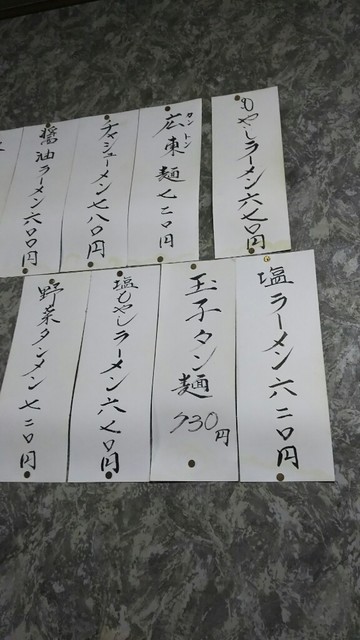 もやしラーメン六七〇円
広東麺七二〇円
カントン
チャシューメン七八〇円
醤油ラーメン六〇〇円
塩ラーメン六二〇円
玉子タン麺
730円
塩もやしラーメン六七〇円
野菜タンメン七二〇円